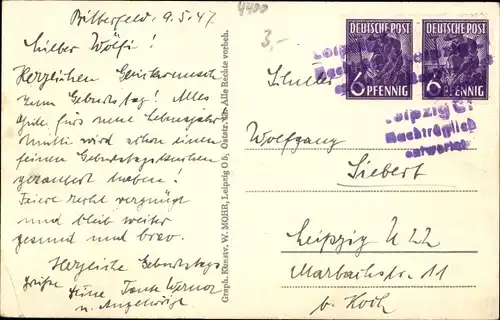 Bitterfeld, 9.5.47
4400
3,-
Lieber Wölfi!
Herzlichen Glückwunsch
zum Geburtstag! Alles
Gute fürs neue Lebensjahr!
Mutti wird schon einen
feinen Geburtstagskuchen
gezaubert haben!
Feiere recht vergnügt
und bleib weiter
gesund und brav.
Herzliche Geburtstags
grüße Deine Tante Werner
u. Angehörige
Graph. Kunstv. W. MOHR, Leipzig O 5, Oststr. Alle Rechte vorbeh.
DEUTSCHE POST
6 PFENNIG
DEUTSCHE POST
6 PFENNIG
Leipzig
Nachträglich
Leipzig C1
Nachträglich
entwertet
Schüler
Wolfgang
Siebert
Leipzig N 22
Marbachstr. 11
b. Koch